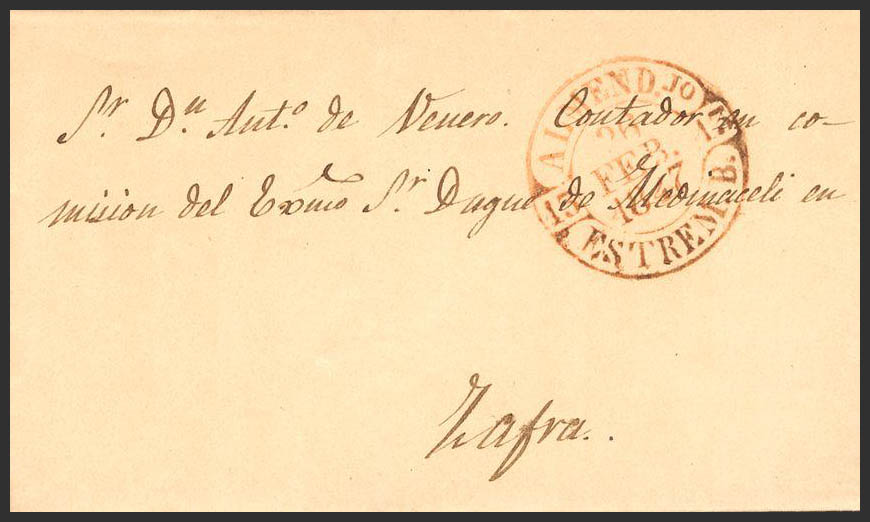 Sr. Dn Anto. de Venero. Contador en co-
mision del Exmo Sr. Duque de Medinaceli en
Zafra.
ALMEND.JO
FEB.
ESTREM. B.